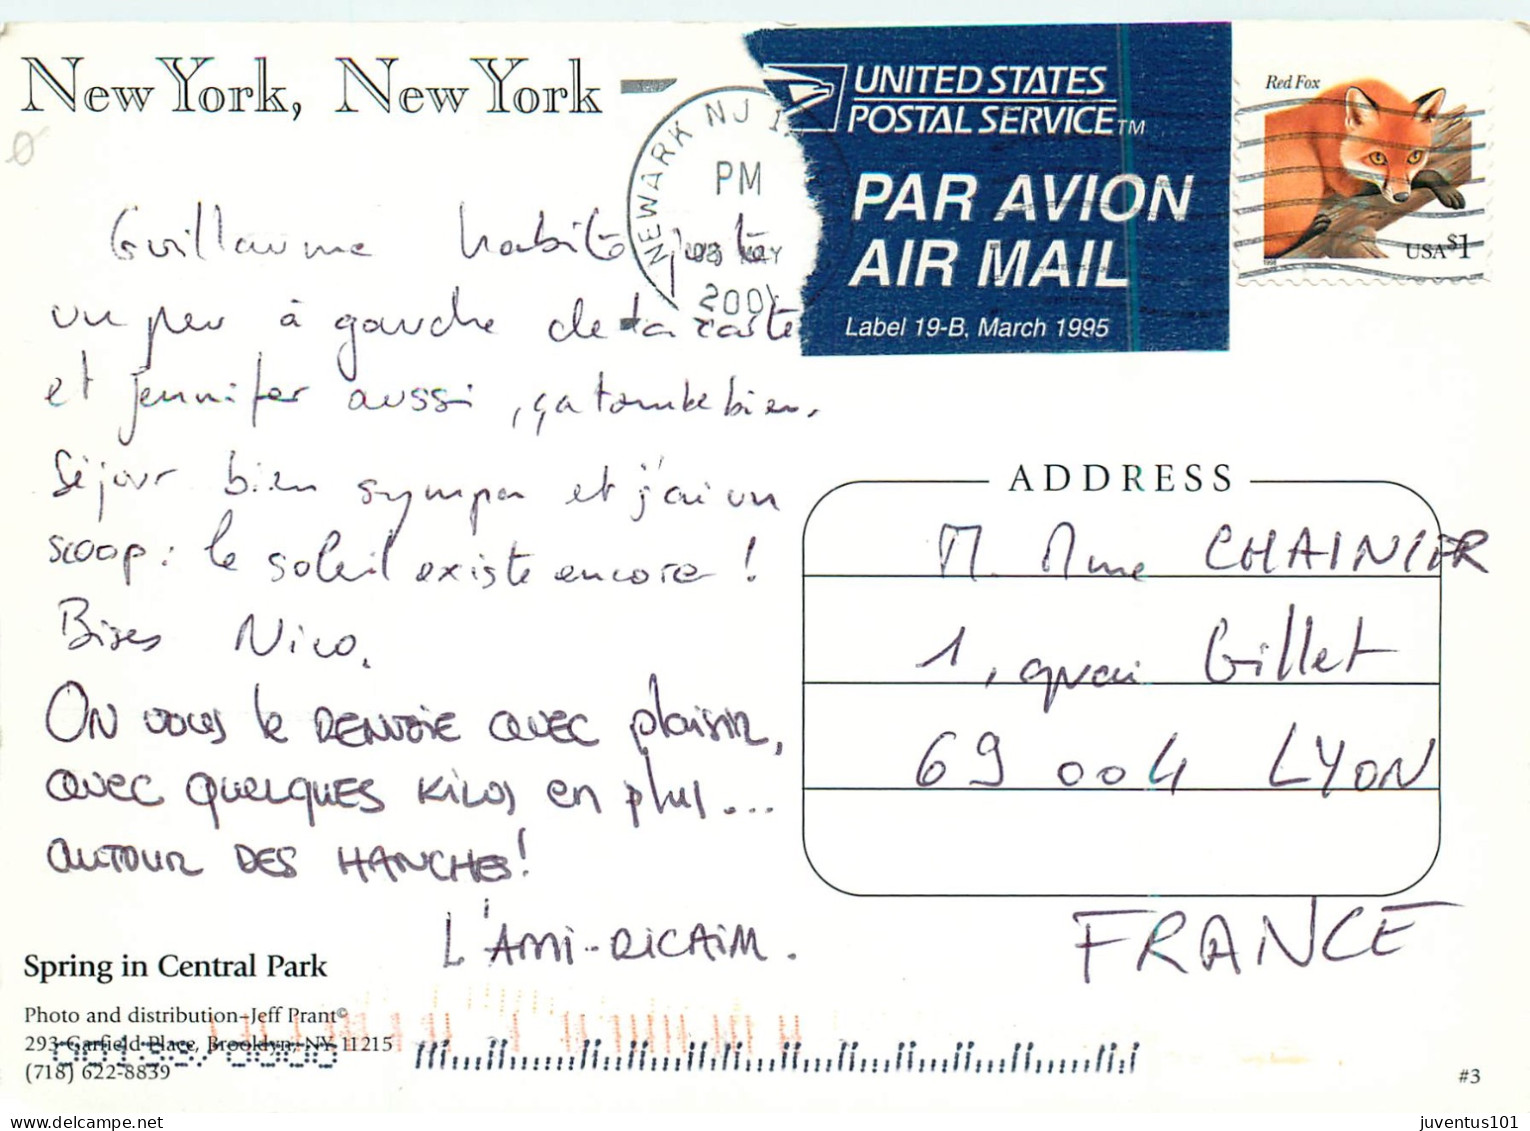 New York, New York
UNITED STATES
POSTAL SERVICE TM
PAR AVION
AIR MAIL
Label 19-B, March 1995
NEWARK NJ
PM
MAY
200
Red Fox
USA $1
Guillaume habite juste
un peu à gauche de la carte
et Jennifer aussi, ça tombe bien.
Séjour bien sympa et j'ai un
scoop : le soleil existe encore !
Bises Nico.
ON vous le RENVOIE avec plaisir,
avec QUELQUES KILOS en plus...
AUTOUR DES HANCHES!
L'AMI-RICAIN.
ADDRESS
M. Mme CHAINIER
1, quai Gillet
69 004 LYON
FRANCE
Spring in Central Park
Photo and distribution–Jeff Prant©
293 Garfield Place, Brooklyn, NY 11215
(718) 622-8839
#3
delcampe.net
juventus101